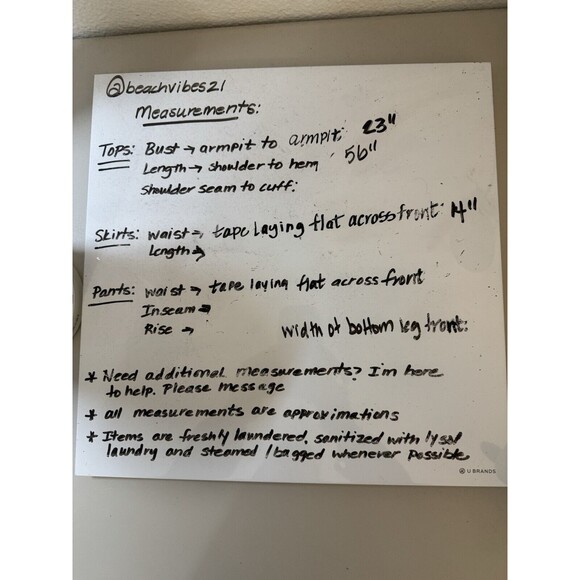 @beachvibes21
Measurements:
Tops: Bust → armpit to armpit: 23"
Length → shoulder to hem 56"
Shoulder seam to cuff:
Skirts: waist → tape laying flat across front: 14"
Length →
Pants: waist → tape laying flat across front
Inseam →
Rise → width of bottom leg front:
* Need additional measurements? I'm here
to help. Please message
* all measurements are approximations
* Items are freshly laundered, sanitized with lysol
laundry and steamed / bagged whenever possible
U BRANDS